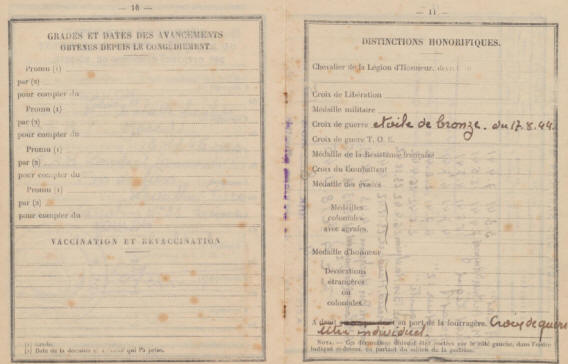 — 10 —
GRADES ET DATES DES AVANCEMENTS
OBTENUS DEPUIS LE CONGÉDIEMENT.
Promu (1)
par (2)
pour compter du
Promu (1)
par (2)
pour compter du
Promu (1)
par (2)
pour compter du
Promu (1)
par (2)
pour compter du
VACCINATION ET REVACCINATION
(1) Grade.
(2) Date de la décision et autorité qui l'a prise.
— 11 —
DISTINCTIONS HONORIFIQUES.
Chevalier de la Légion d'Honneur,
Croix de Libération
Médaille militaire
Croix de guerre etoile de bronze. du 17.8.44.
Croix de guerre T. O. E.
Médaille de la Résistance française
Croix du Combattant
Médaille des évadés
Médailles
coloniales
avec agrafes.
Médaille d'honneur
Décorations
étrangères
ou
coloniales
A droit au port de la fourragère. Croix de guerre
titre individuel.
NOTA. — Ces décorations doivent être portées sur le côté gauche, dans l'ordre
indiqué ci-dessus, en partant du milieu de la poitrine.